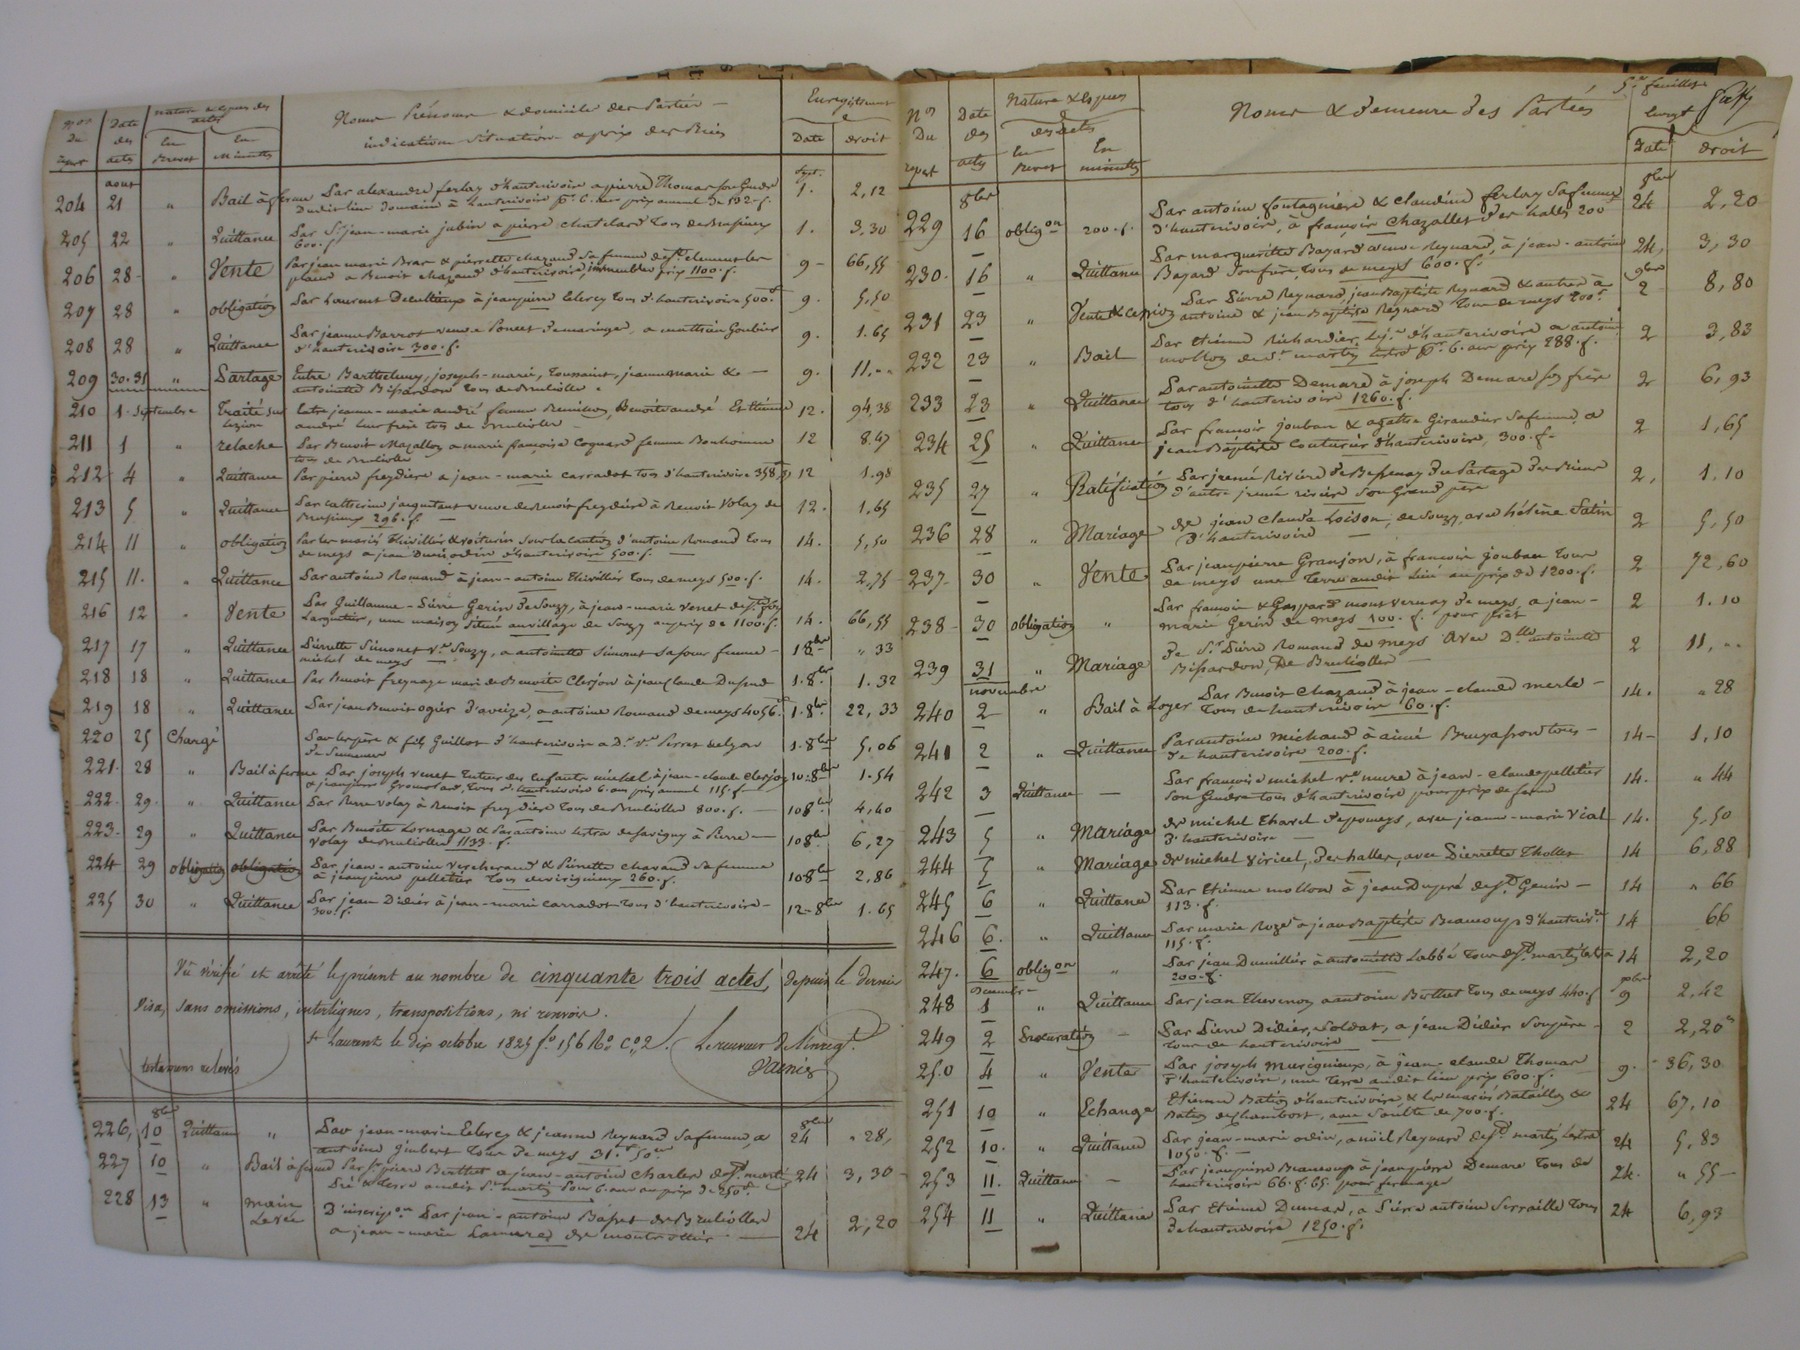 Nos Du repert
Date des actes
Nature & espece des actes
En Brevet
En Minuttes
Noms Prénoms & domicile des Parties —
indication Situation & prix des Biens
Enregistrement
Date
droit
aout
Sept.
204 21 " Bail à ferme Par alexandre ferlay d'hauterivoire a pierre Thomas son Gendre 1. 2,12
Dudit lieu Domaine à hauterivoire pr. 6. ans prix annuel de 192 f.
205 22 " Quittance Par St jean-marie jubin a pierre chatelard Tous de Brussieux 1. 3,30
600 f.
206 28 " Vente Par jean marie Bras & pierrette chazaud Sa femme de St clement les 9 - 66,55
places a Benoit chazaud d'hauterivoire, immeubles prix 1100. f.
207 28 " obligation Par Laurent Decultieux à jean pierre Eclercy tous d'hauterivoire 500 f 9. 5,50
208 28 " Quittance Par jeanne Barrot veuve Poncet de maringes, a Goubier 9. 1.65
d'hauterivoire 300. f.
209 30.31 " Partage Entre Barthelemy, joseph-marie, Toussaint, jeanne marie & — 9. 11. "
antoinette Bissardon tous de Brullioles.
210 1. Septembre Traité sur Entre jeanne-marie andré femme Remillon, Benoite andré Et Etienne 12. 94,38
lezion andré leur frere tous de Brullioles —
211 1 " relache Par Benoit Mazallon a marie françoise Coquard femme Bonhomme 12 8.47
tous de Brullioles
212 4 " Quittance Par pierre freydiere a jean-marie carradot tous d'hauterivoire 358 f 12 1.98
213 5 " Quittance Par catherine jarguitant veuve de Benoit freydiere à Benoit Volay de 12. 1,65
Brussieux 296. f. —
214 11 " obligation Par les mariés Thivillier & voiturier Sous la caution d'antoine Romand tous 14. 5,50
de meys a jean odin d'hauterivoire 500. f. —
215 11. " Quittance Par antoine Romand à jean-antoine Thivillier tous de meys 500. f. 14. 2,75
216 12 " Vente Par Guillaume-Pierre Gerin de Souzy, à jean-marie venet de St foy 14. 66,55
Largentiere, une maison située au village de Souzy au prix de 1100. f.
217 17 " Quittance Pierrette Simonet ve Souzy, a antoinette Simonet Sa sœur femme — 1 8bre " 33
michel de meys —
218 18 " Quittance Par Benoit freynage mari de Benoite Clerjon à jean Claude Dupeud 1. 8bre 1. 32
219 18 " Quittance Par jean Benoit ogier d'aveize, a antoine Romand de meys 4056 f 1. 8bre 22, 33
220 25 Chargé Par les père & fils Guillot d'hauterivoire a De ve Perret de lyon 1. 8bre 5,06
221. 28 " Bail à ferme Par joseph venet Tuteur des Enfants michel à jean-claude Clerjon 10. 8bre 1. 54
& jean pierre Grousset, tous d'hauterivoire 6. ans prix annuel 115. f
222. 29. " Quittance Par Pierre Volay à Benoit freydiere Tous de Brullioles 800. f. — 10 8bre 4,40
223. 29 " Quittance Par Benoite Lornage & Par antoine Lestra de Savigny à Pierre — 10 8bre 6,27
Volay de Brullioles 1133. f.
224 29 obligation obligation Par jean-antoine Vercherand & Pierrette chavand Sa femme 10 8bre 2,86
à jean pierre pelletier Tous de virigneux 260. f.
225 30 " Quittance Par jean Didier à jean-marie carradot tous d'hauterivoire — 12 - 8bre 1. 65
300. f.
Vû vérifié et arrêté le présent au nombre de cinquante trois actes, depuis le dernier
Visa, Sans omissions, interlignes, transpositions, ni renvois.
St Laurent le dix octobre 1825 fo 156 Ro Co 2. Le receveur de l'enregt.
testamens relevés
8bre
8bre
226, 10 Quittance " Par jean-marie Eclercy & jeanne Reynard Sa femme, a 24 " 28,
antoine Gimbert tous de meys 31. f 50 c
227 10 " Bail à ferme Par St pierre Berthet a jean-antoine Charles de St marti 24 3, 30
Pré & terre audit St martin Pour 6. ans au prix de 250 f.
228 13 " main Levée D'inscripon Par jean-antoine Basset de Brullioles 24 2,20
a jean-marie Lamure de montrottier —
5e feuillet
Nos Du repert
Date des actes
Nature & Especes des actes
En Brevet
En minuttes
Noms & demeure des Parties
Date
droit
8bre
8bre
229 16 obligon 200. f. Par antoine fontagniere & claudine ferlay Sa femme 24 2,20
d'hauterivoire, à françois Chazallet des halles 200 f
230. 16 " Quittance Par marguerite Bayard veuve Reynard, à jean-antoine 24, 3,30
Bayard Son frere, tous de meys 600. f.
9bre
231 23 " Vente & cession Par Pierre Reynard, jean Baptiste Reynard & autres à 2 8,80
antoine & jean Baptiste Reynard Tous de meys 200 f.
232 23 " Bail Par Etienne Richardier, d'hauterivoire a antoine 2 3,83
mollon de St martin Lestra pr. 6. ans prix 288. f.
233 23 " Quittance Par antoinette Demare à joseph Demare Son frère 2 6,93
tous d'hauterivoire 1260. f.
234 25 " Quittance Par françois jouban & agathe Giraudier Sa femme, a 2 1,65
jean Baptiste Couturier d'hauterivoire, 300. f.
235 27 " Ratification Par jremé Riviere de Bessenay du Partage des Biens 2, 1. 10
d'autre jremé riviere Son Grand père
236 28 " Mariage de jean Claude Loison, de Souzy, avec hélène Fatin 2 5,50
d'hauterivoire —
237. 30 " Vente Par jean pierre Granjon, à francois jouban Tous 2 72,60
de meys une Terre audit Lieu au prix de 1200. f.
238 - 30 obligation " Par francois & Gaspard montvernay de meys, a jean- 2 1.10
marie Gerin de meys 100. f. pour prêt
239 31 " Mariage de Sr Pierre Romand de meys Avec Dlle antoinette 2 11, "
Bissardon, de Brullioles —
novembre
240 2 " Bail à Loyer Par Benoit Chazaud à jean-claude merle — 14. " 28
Tous de hauterivoire 60. f.
241 2 " Quittance Par antoine michaud à aimé Bruyas tous — 14 - 1, 10
de hauterivoire 200. f.
242 3 Quittance — Par françois michel ve mure à jean-claude pelletier 14. " 44
Son Gendre tous d'hauterivoire pour prix de ferme
243 5 " Mariage de michel Charel de pomeys, avec jeanne-marie Vial 14. 5,50
d'hauterivoire —
244 5 " Mariage de michel Viricel, des halles, avec Pierrette Thollet 14 6,88
245 6 " Quittance Par Etienne mollon à jean Dupré de St Genis — 14 " 66
113. f.
246 6. " Quittance Par marie Rozé a jean Baptiste Beaucoup d'hauterivre 14 66
115. f.
247. 6 obligon " Par jean Dumillier à antoinette Labbé tous de St martin lestra 14 2,20
200. f.
Decembre — xbre
248 1 " Quittance Par jean Thevenon a antoine Berthet tous de meys 440. f 9 2,42
249 2 Procuration — Par Pierre Didier, Soldat, a jean Didier Son père — 2 2,20
tous de hauterivoire
250 4 " Vente Par joseph murigneux, à jean-claude Thomas 9. 36,30
d'hauterivoire, une Terre audit lieu prix 600. f.
251 10 " Echange Etienne Batin d'hauterivoire & les mariés Bataillon & 24 67,10
Batin de chambost, avec Soulte de 700. f.
252 10. " Quittance Par jean-marie odin, a noël Reynard de St martin Lestra 24 5,83
1050. f. —
253 11. Quittance — Par jean pierre Beaucoup à jean pierre Demare Tous de 24. " 55 —
hauterivoire 66. f. 65. pour fermage
254 11 " Quittance Par Etienne Dumas, a Pierre antoine Serraille Tous 24 6,93
de hauterivoire 1250. f.